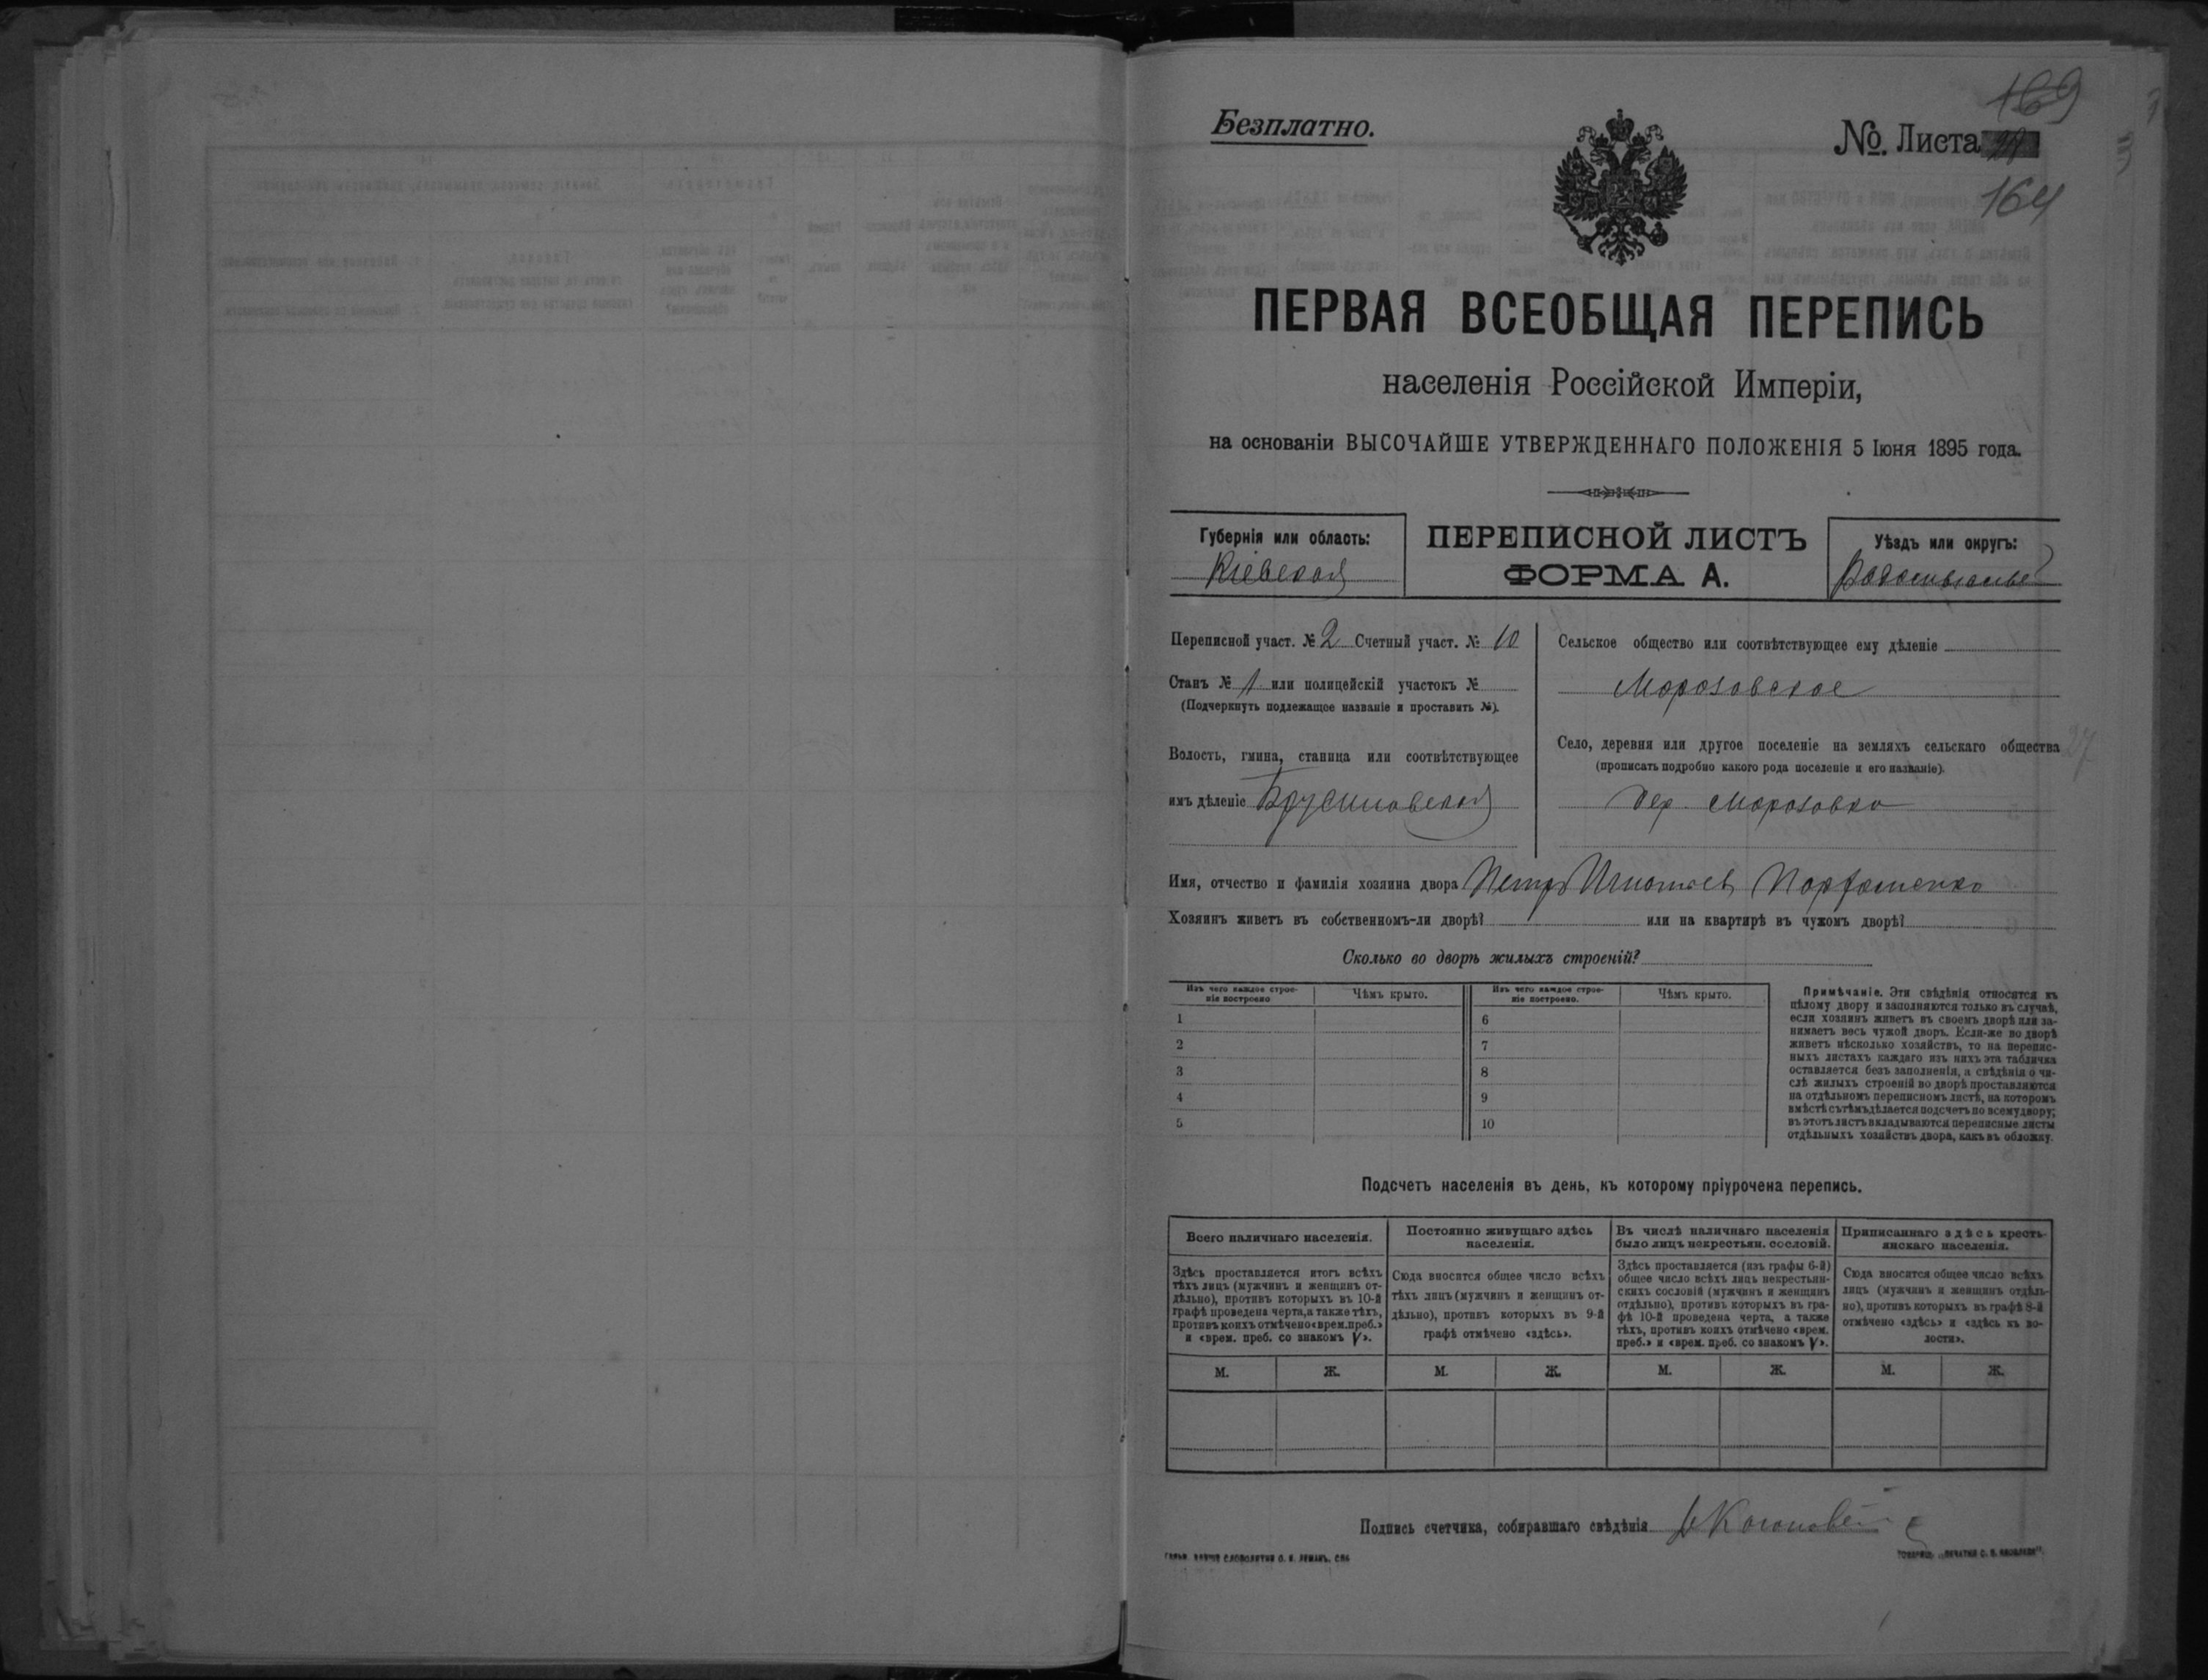 Безплатно.
169
№. Листа
164
ПЕРВАЯ ВСЕОБЩАЯ ПЕРЕПИСЬ
населенія Россійской Имперіи,
на основаніи ВЫСОЧАЙШЕ УТВЕРЖДЕННАГО ПОЛОЖЕНІЯ 5 Іюня 1895 года.
Губернія или область:
Кіевская
ПЕРЕПИСНОЙ ЛИСТЪ
ФОРМА А.
Уѣздъ или округъ:
Переписной участ. № 2 Счетный участ. № 10
Станъ № 1 или полицейскій участокъ №
(Подчеркнуть подлежащее названіе и проставить №).
Волость, гмина, станица или соотвѣтствующее
имъ дѣленіе Брусиловская
Сельское общество или соотвѣтствующее ему дѣленіе
Морозовское
Село, деревня или другое поселеніе на земляхъ сельскаго общества
27
(прописать подробно какого рода поселеніе и его названіе).
дер. Морозовка
Имя, отчество и фамилія хозяина двора Петръ Игнатьевъ Парфоменко
Хозяинъ живетъ въ собственномъ-ли дворѣ? или на квартирѣ въ чужомъ дворѣ?
Сколько во дворѣ жилыхъ строеній?
Изъ чего каждое строе-
ніе построено
Чѣмъ крыто.
Изъ чего каждое строе-
ніе построено.
Чѣмъ крыто.
1 6
2 7
3 8
4 9
5 10
Примѣчаніе. Эти свѣдѣнія относятся къ
цѣлому двору и заполняются только въ случаѣ,
если хозяинъ живетъ въ своемъ дворѣ или за-
нимаетъ весь чужой дворъ. Если-же во дворѣ
живетъ нѣсколько хозяйствъ, то на перепис-
ныхъ листахъ каждаго изъ нихъ эта табличка
оставляется безъ заполненія, а свѣдѣнія о чи-
слѣ жилыхъ строеній во дворѣ проставляются
на отдѣльномъ переписномъ листѣ, на которомъ
вмѣстѣ съ тѣмъ дѣлается подсчетъ по всему двору;
въ этотъ листъ вкладываются переписные листы
отдѣльныхъ хозяйствъ двора, какъ въ обложку.
Подсчетъ населенія въ день, къ которому пріурочена перепись.
Всего наличнаго населенія.
Здѣсь проставляется итогъ всѣхъ
тѣхъ лицъ (мужчинъ и женщинъ от-
дѣльно), противъ которыхъ въ 10-й
графѣ проведена черта, а также тѣхъ,
противъ коихъ отмѣчено «врем. преб.»
и «врем. преб. со знакомъ V».
Постоянно живущаго здѣсь
населенія.
Сюда вносится общее число всѣхъ
тѣхъ лицъ (мужчинъ и женщинъ от-
дѣльно), противъ которыхъ въ 9-й
графѣ отмѣчено «здѣсь».
Въ числѣ наличнаго населенія
было лицъ некрестьян. сословій.
Здѣсь проставляется (изъ графы 6-й)
общее число всѣхъ лицъ некрестьян-
скихъ сословій (мужчинъ и женщинъ
отдѣльно), противъ которыхъ въ гра-
фѣ 10-й проведена черта, а также
тѣхъ, противъ коихъ отмѣчено «врем.
преб.» и «врем. преб. со знакомъ V».
Приписаннаго здѣсь кресть-
янскаго населенія.
Сюда вносится общее число всѣхъ
лицъ (мужчинъ и женщинъ отдѣль-
но), противъ которыхъ въ графѣ 8-й
отмѣчено «здѣсь» и «здѣсь къ во-
лости».
М. Ж. М. Ж. М. Ж. М. Ж.
Подпись счетчика, собиравшаго свѣдѣнія